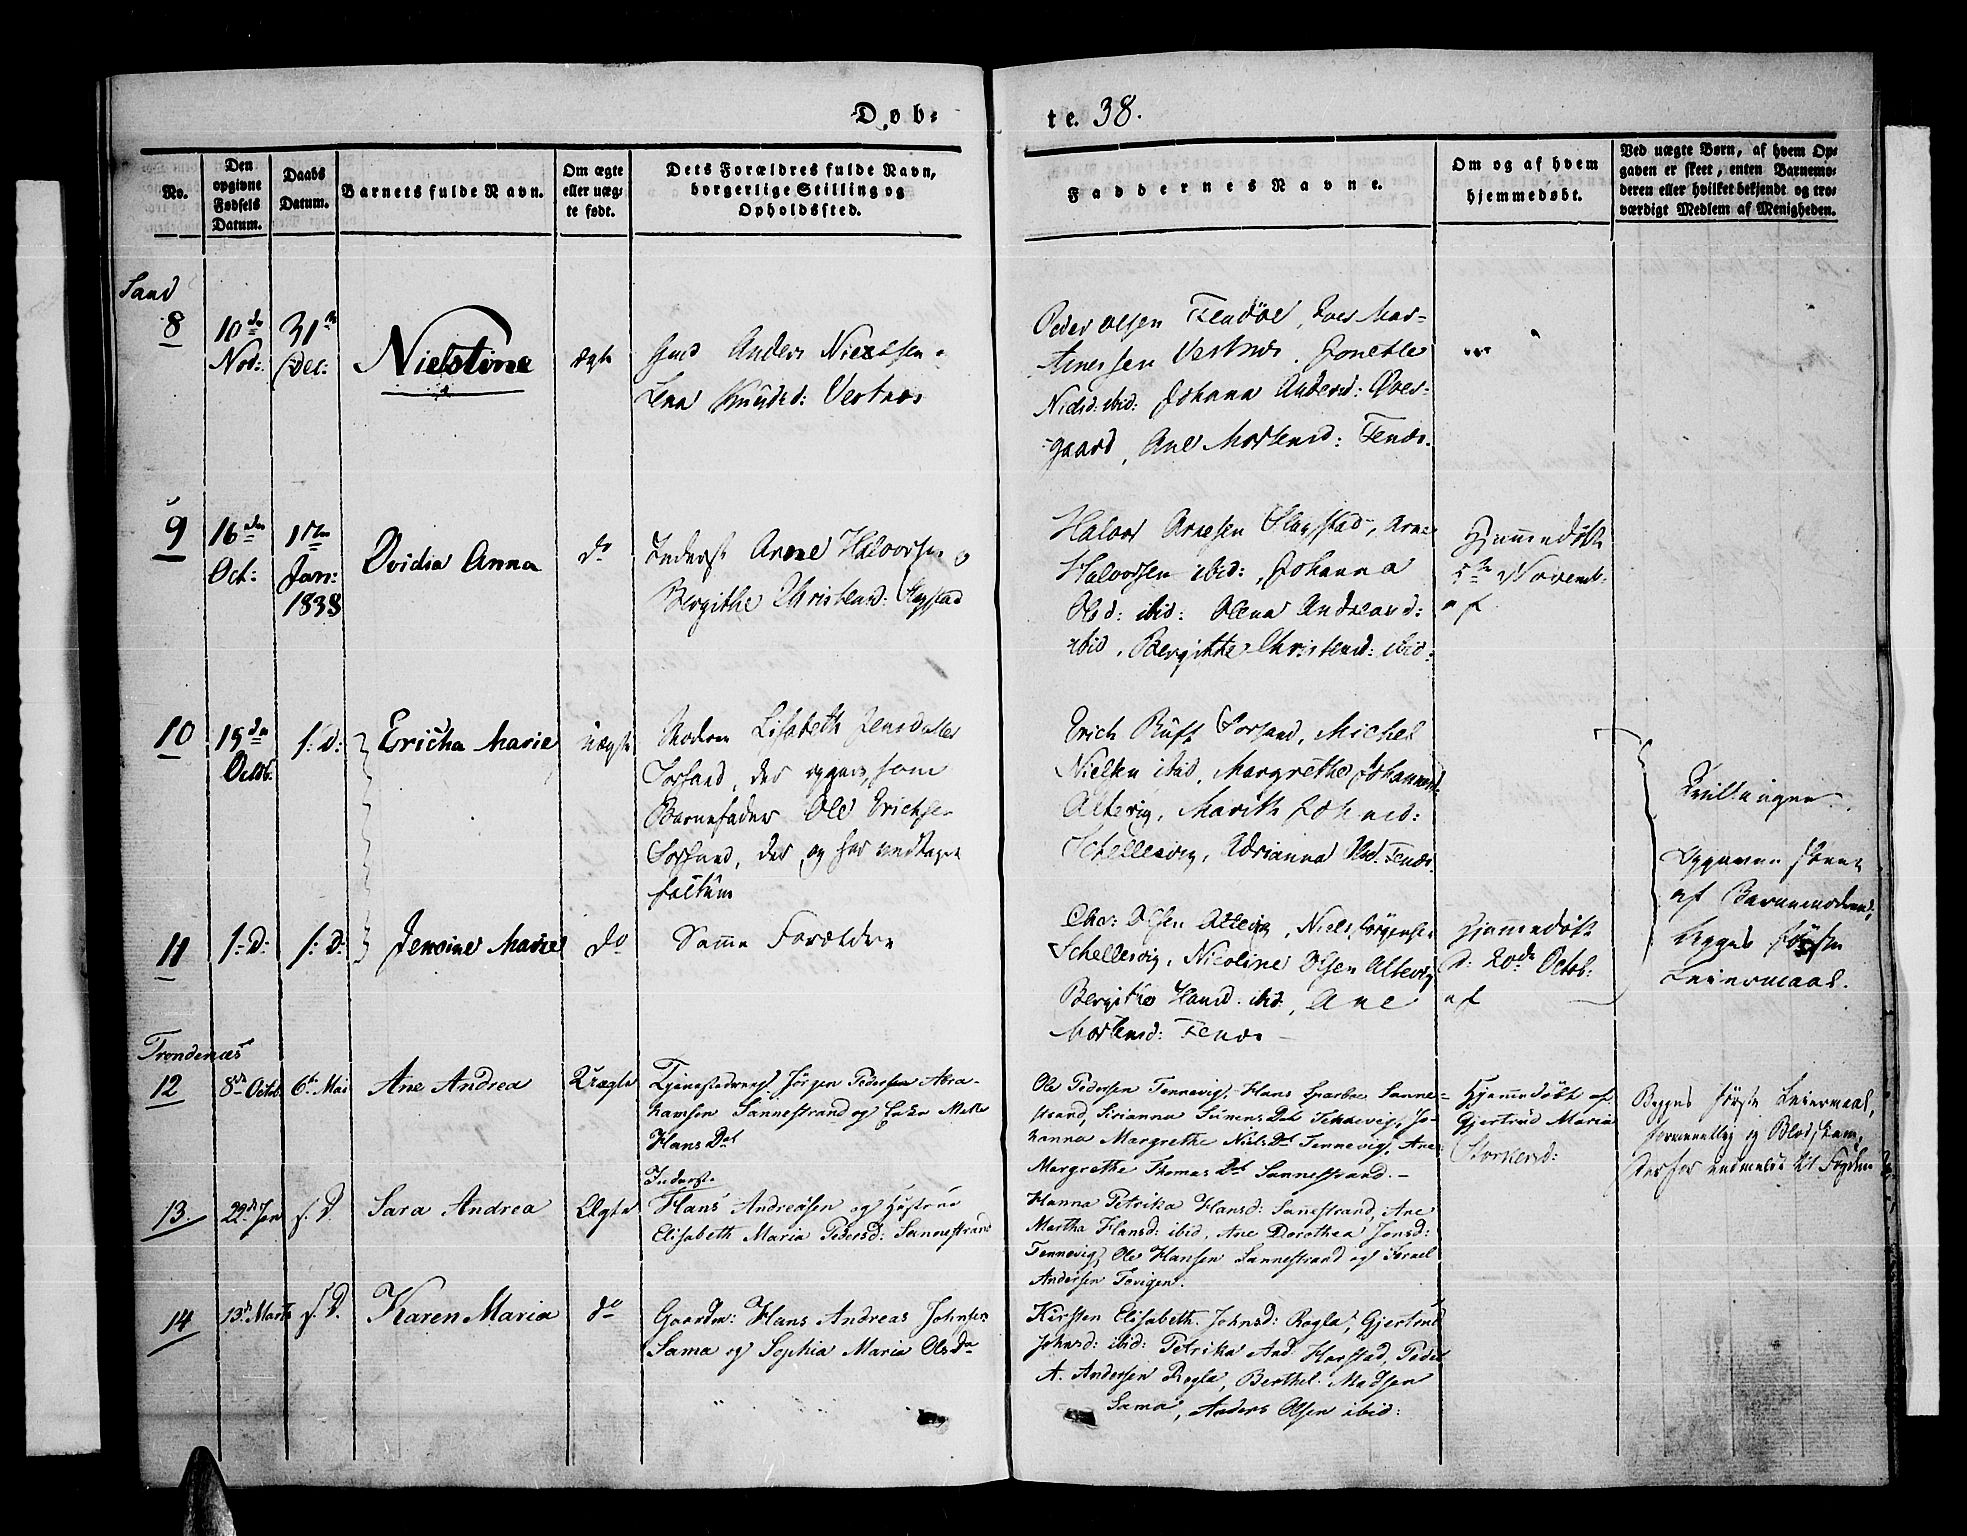 Døb-
te. 38.
No.
Den
opgivne
Fødsels
Datum.
Daabs
Datum.
Barnets fulde Navn.
Om ægte
eller uæg-
te født.
Dets Forældres fulde Navn,
borgerlige Stilling og
Opholdssted.
Faddernes Navne.
Om og af hvem
hjemmedøbt.
Ved uægte Børn, af hvem Op-
gaven er skeet, enten Barnemo-
deren eller hvilket bekjendt og tro-
værdigt Medlem af Menigheden.
Sand
8
10de
Nov:
31te
Dec:
Nielstine
ægte
Gmd Anders Nielsen
Lena Knudsd: Vestnæs
Peder Olsen
Arnessen Vestnæs. Jonette
Nielsd: ibid: Johana Andersd: Øver-
gaard, Ane Mortensd: Fenæs.
9
16de
Oct:
1ste
Jan:
1838
Ovidia Anna
do
Inderst Arne Halvorsen o
Bergithe Christensd:
Halvor Arnesen, Arne
Halvorsen ibid:, Johanna
Olsd: ibid: Olena Andreasd:
ibid, Bergitte Christensd: ibid:
Hjemmedøbt
5te Novemb:
af
10
15de
Octob.
1: d:
Ericha Marie
uægte
Moderen Lisabeth Jensdatter
Sørsand, der opgav som
Barnefader Ole Erichsen
Sørsand, der og har vedtaget
factum
Erich Ruft Sorsand, Michel
Nielsen ibid, Margrethe Johannesd:
Altevig, Marith Johnsd:
Schellesvig, Adrianna Olsd. Fenæs.
Tvillinger.
Opgaven skeet
af Barnemoderen;
Begges første
Leiermaal.
11
1: d:
1: d:
Jensine Marie
do
Samme Forældre
Chr: Olsen Altevig, Niels Jørgensen
Schellesvig, Nicoline Olsen Altevig
Bergithe Hansd: ibid, Ane
Mortensd: Fenæs
Hjemmedøbt
d: 20de Octob:
af
Trondenæs
12
8de Octob.
6te Mai
Ane Andrea
Uægte
Tjenestedreng Jörgen Pedersen Abra-
hamsen Sannestrand og Enke Mette
Hans Dat
Ole Pedersen Tennevig, Hans Sparbo Sanne-
strand, Sirianna Simons Dat Tennevig, Jo-
hanna Margrethe Niels Dat Tennevig, Ane
Margrethe Thomas Dat Sannestrand.
Hjemmedöbt af
Gjertrud Maria
Storkersd:
Begges förste Leiermaal,
formeentlig og Blodskam,
derfor indmeldt til Fogden
13
22de Jan
s. D.
Sara Andrea
Ægte
Inderst
Hans Andreasen og Hustrue
Elisabeth Maria Pedersd: Sannestrand
Hanna Petrika Hansd: Sanestrand, Ane
Martha Hansd: ibid, Ane Dorothea Jonsd:
Tennevig, Ole Hansen Sannestrand og Israel
Andersen Tovigen.
14
13de Marts
s. D.
Karen Maria
do
Gaardm: Hans Andreas Johnsen
Sama og Sophia Maria Olsda
Kirsten Elisabeth Johnsd: Rogla, Gjertrud
Johnsd: ibid: Petrika And: Harstad, Peder
A. Andersen Rogla, Berthel Madsen
Sama, Anders Olsen ibid: